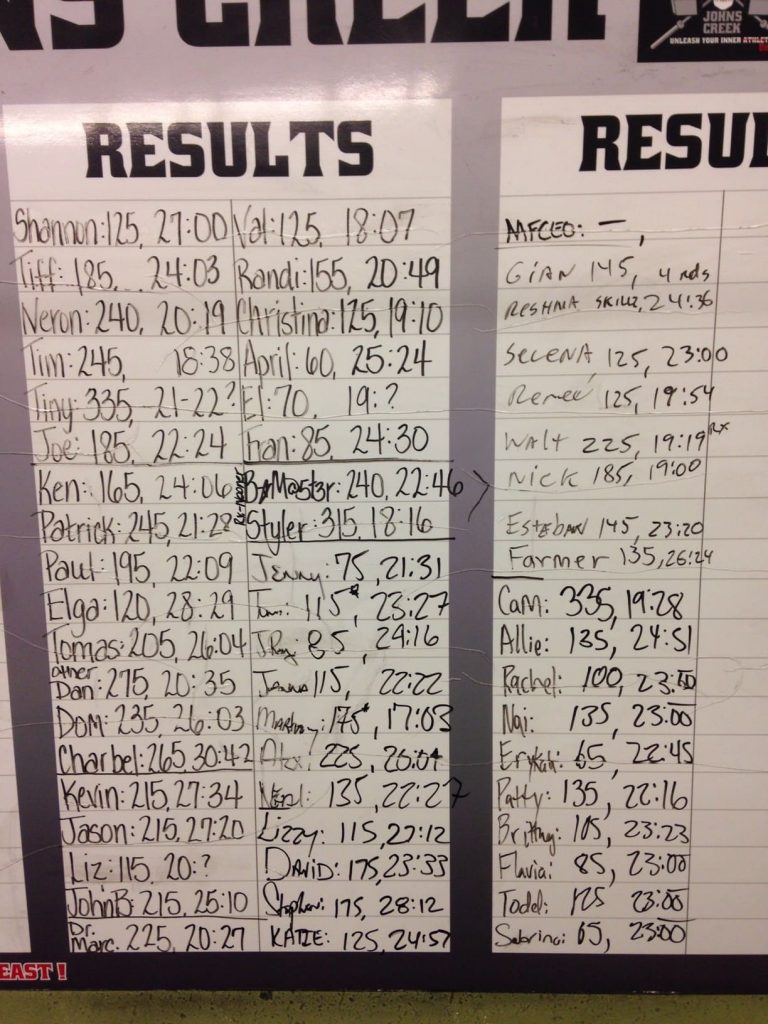 JOHNS
CREEK
UNLEASH YOUR INNER ATHLETE
RESULTS
Shannon: 125, 27:00
Tiff: 185, 24:03
Neron: 240, 20:19
Tim: 245, 18:38
Tiny: 335, 21-22?
Joe: 185, 22:24
Ken: 165, 24:06
Patrick: 245, 21:28
Paul: 195, 22:09
Elga: 120, 28:29
Tomas: 205, 26:04
other
Dan: 275, 20:35
Dom: 235, 26:03
Charbel: 265, 30:42
Kevin: 215, 27:34
Jason: 215, 27:20
Liz: 115, 20:?
John B: 215, 25:10
Dr.
Marc: 225, 20:27
Val: 125, 18:07
Randi: 155, 20:49
Christina: 125, 19:10
April: 60, 25:24
El: 70, 19:?
Fran: 85, 24:30
240, 22:46
Styler: 315, 18:16
Jenny: 75, 21:31
115*, 23:27
85, 24:16
Jenna 115, 22:22
175*, 17:03
Alex: 225,
135, 22:27
Lizzy: 115, 27:12
DAVID: 175, 23:33
Stephen: 175, 28:12
KATIE: 125, 24:57
RESUL
MFCEO: —,
GIAN 145, 4 rds
RESHMA SKILLZ, 24:36
SELENA, 125, 23:00
Reneé 125, 19:54
WALT 225, 19:19 RX
NICK 185, 19:00
ESTEBAN 145, 23:20
Farmer 135, 26:24
Cam: 335, 19:28
Allie: 135, 24:51
Rachel: 100, 23:00
Nai: 135, 23:00
Erykah: 65, 22:45
Patty: 135, 22:16
Brittny: 105, 23:23
Flavia: 85, 23:00
Todd: 125 23:00
Sabrina: 65, 23:00
EAST!